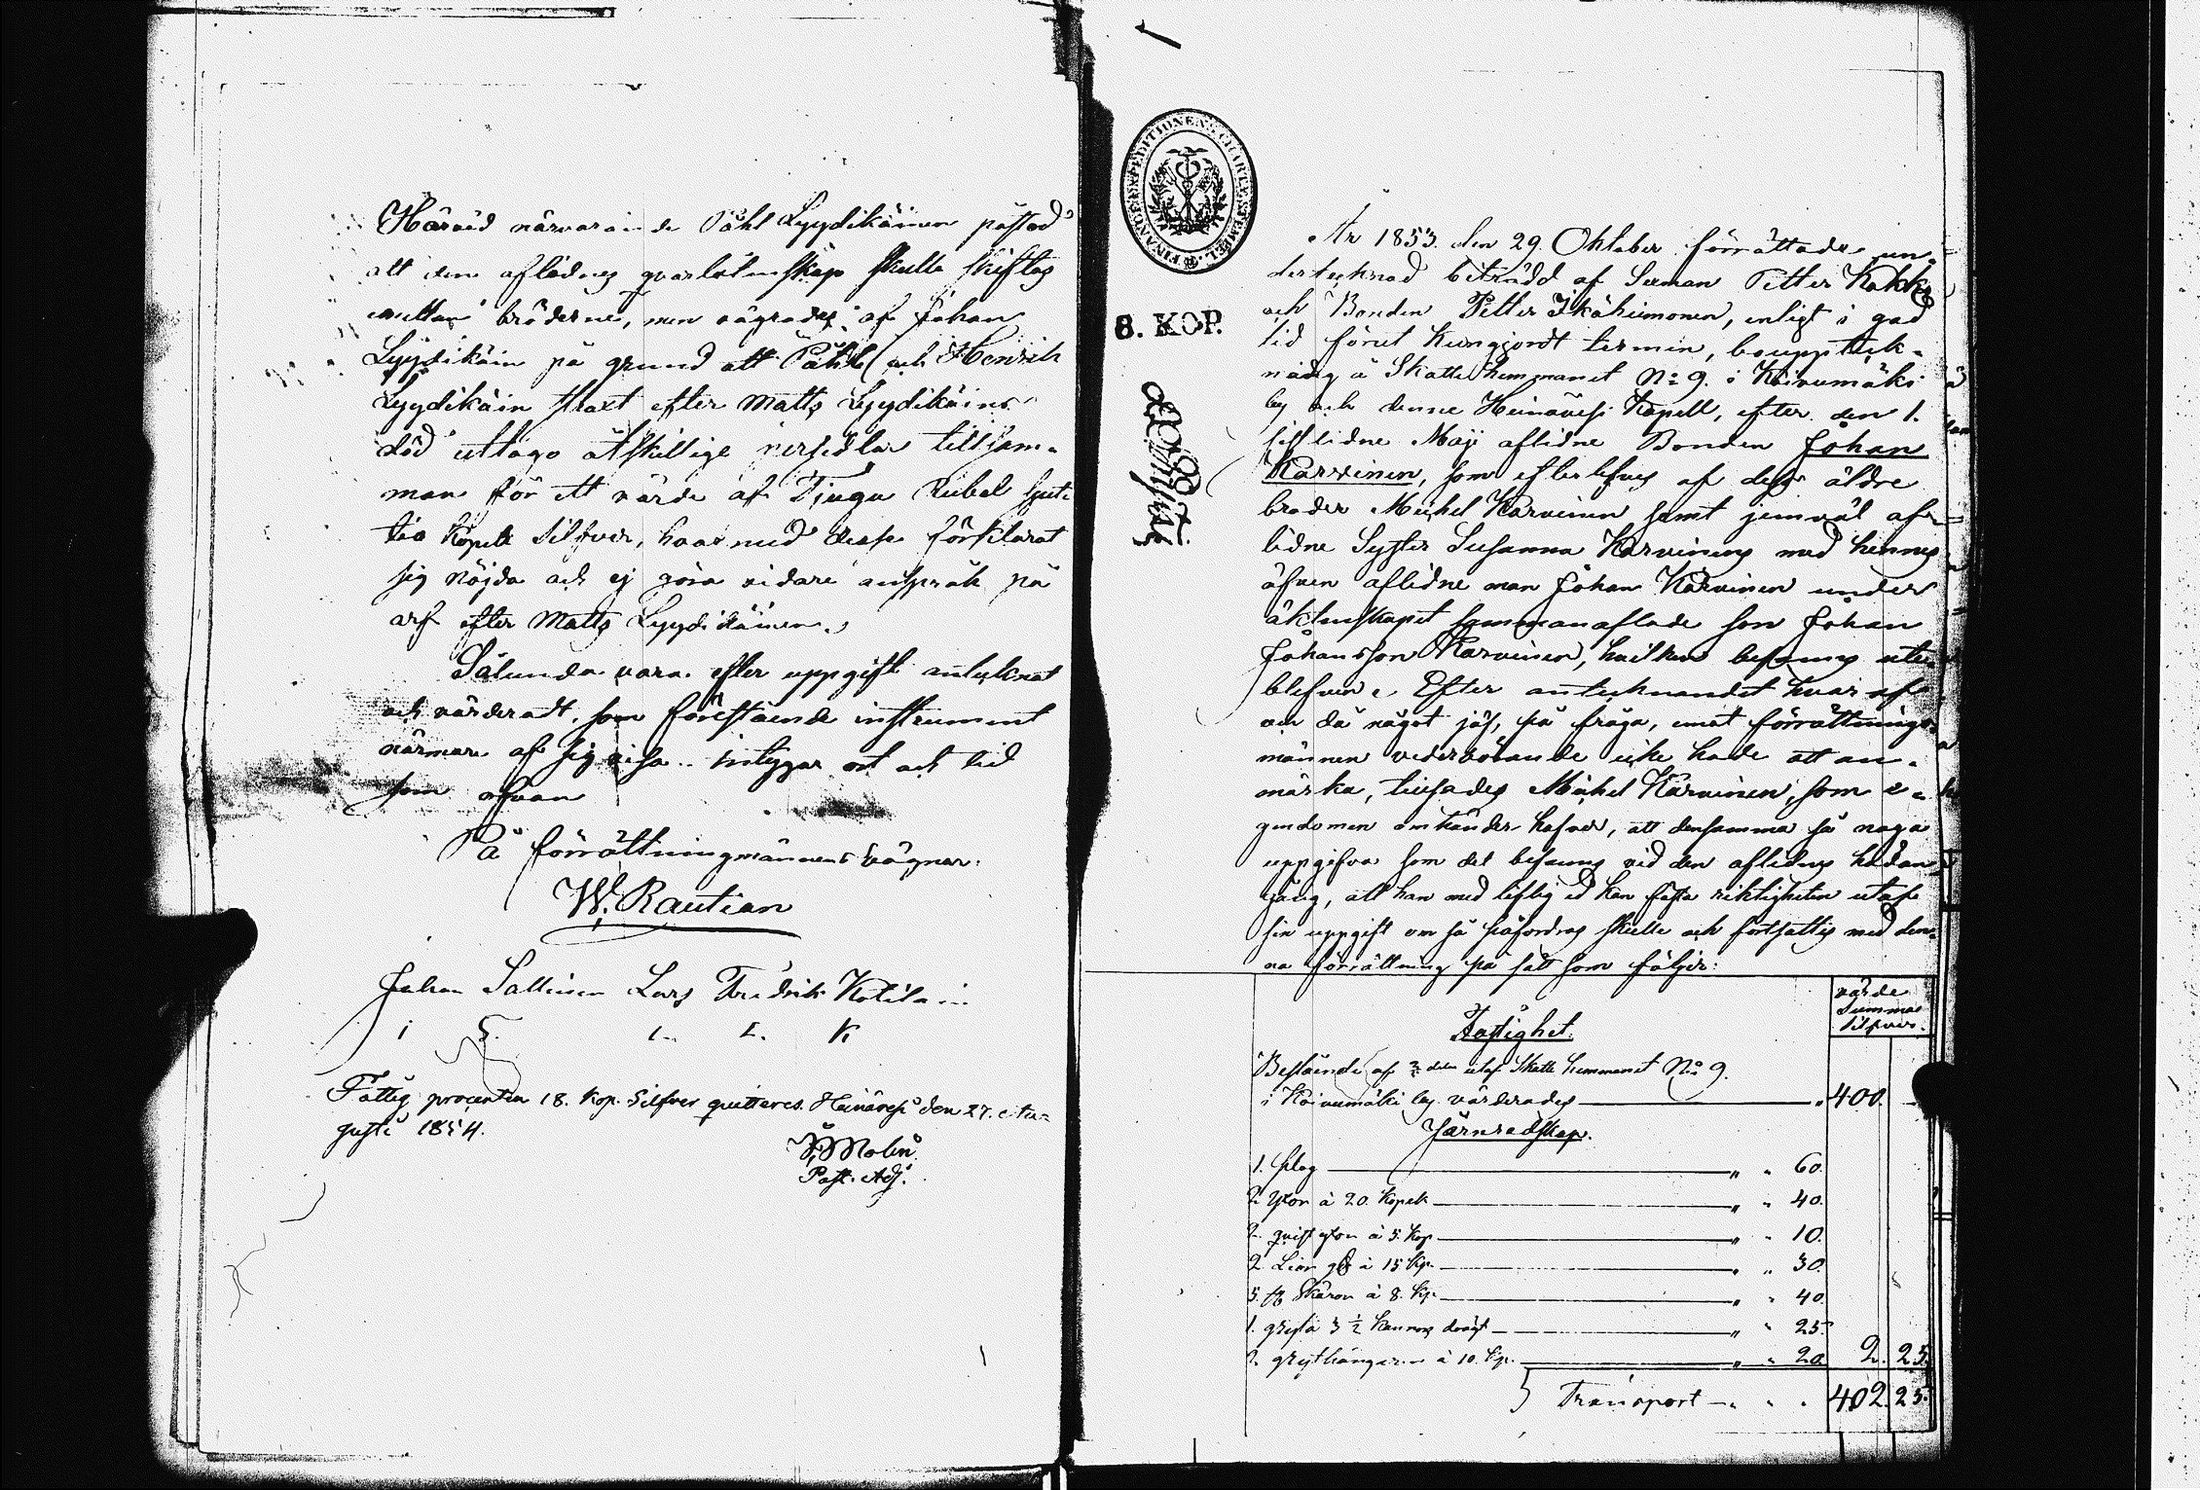 Härvid närvarande Påhl Lyydikäinen påstod
att den aflidnes qvarlåtenskap skulle skiftas
mellan bröderne, men vägrades af Johan
Lyydikäin på grund att Påhl och Henrik
Lyydikäin straxt efter Matts Lyydikäins
död uttago åtskillige persedlar tillsam-
man för ett värde af Tjugu Rubel
tio Kopek Silfver, hvarmed desse förklarat
sig nöjda och ej göra vidare anspråk på
arf efter Matts Lyydikäinen.
Sålunda vara efter uppgift antecknat
och värderadt, som förestående instrument
närmare af sig visa intygar ort och tid
som ofvan
På förrättningsmännens vägnar:
W. Rautian
Johan Sallinen Lars Fredrik Kotilain
I S. L. F. K
Fattig procenten 18. Kop. Silfver quitteras. Heinävesi den 27. Au-
gusti 1854.
Molin
Past. Adj.
FINANCE EXPEDITIONENS CHARTÆ STEMPEL
8. KOP.
År 1853. den 29. Oktober förrättade un-
dertecknad biträdd af Sexman Petter Kakko
och Bonden Petter Ikäheimonen, enligt i god
tid förut kungjordt termin, bouppteck-
ning å Skattehemmanet No 9. i Koivumäki
by och denne Heinävesi Kapell, efter den 1.
sistlidne Maji aflidne Bonden Johan
Karvinen, som efterlefves af dess äldre
broder Michel Karvinen samt jemväl af-
lidne Syster Susanna Karvinens med hennes
äfven aflidne man Johan Karvinen under
äktenskapet sammanaflade son Johan
Johansson Karvinen, hvilken befanns ute-
blefven. Efter antecknandet hvaraf
och då något jäf, på fråga, emot förrättnings
männen vederbörande icke hade att an-
märka, tillsades Michel Karvinen, som e-
gendomen omhänder hafver, att densamma så noga
uppgifva som det befanns vid den aflidnes hädan-
gång, att han med liflig ed kan fästa riktigheten utaf
sin uppgift om så påfordras skulle och fortsattes med den-
na förrättning på sätt som följer:
värde
Summa
Silfver.
Fastighet.
Bestående af delen utaf Skatte hemmanet No 9.
i Koivumäki by värderades " 400. -
Järnredskap.
1. plog " " 60.
2 Yxor à 20. Kopek " " 40.
2. qvist yxor à 5. Kop " " 10.
2 Liar à 15 Kp. " " 30.
5. Skäror à 8. Kp. " " 40.
1. gryta 3 ½ Kannors drägt " " 25.
2. grythängare à 10. Kp. " " 20 2. 25.
Transport " " 402. 25.